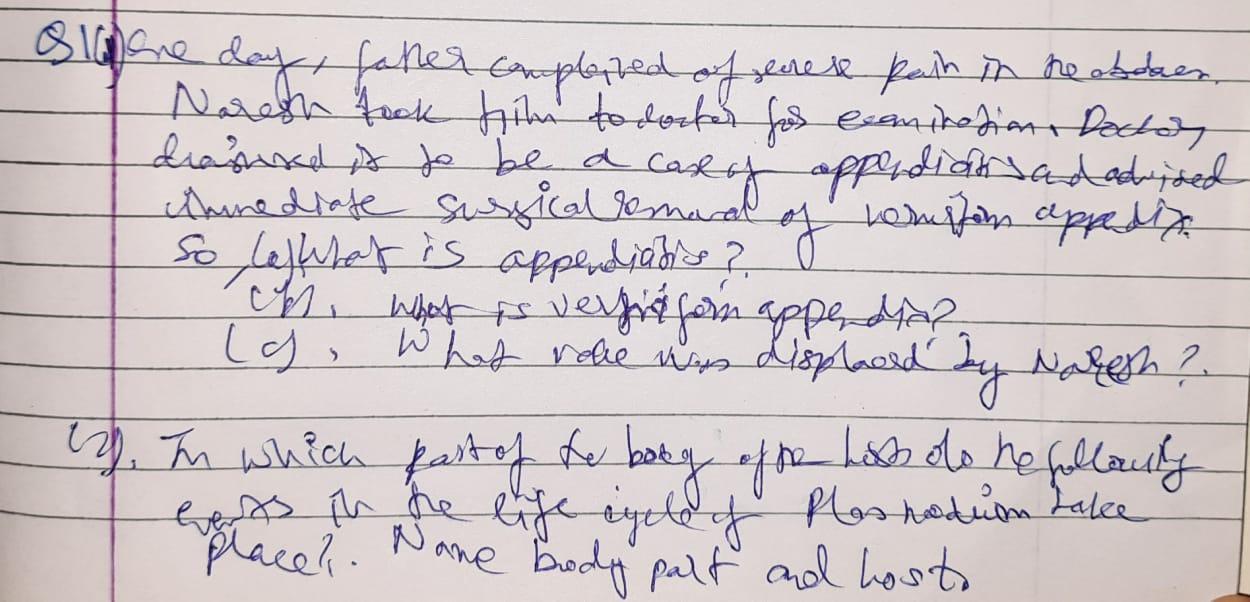 Q1(1) One day, father complained of severe pain in the abdomen.
Naresh took him to doctor for examination. Doctor
diagnosed it to be a case of appendicitis and advised
immediate surgical removal of vermiform appendix.
So, (a) What is appendicitis?
(b), What is vermiform appendix?
(c), What value was displayed by Naresh?
(2). In which part of the body of the host do the following
events in the life cycle of Plasmodium take
place?. Name body part and host.